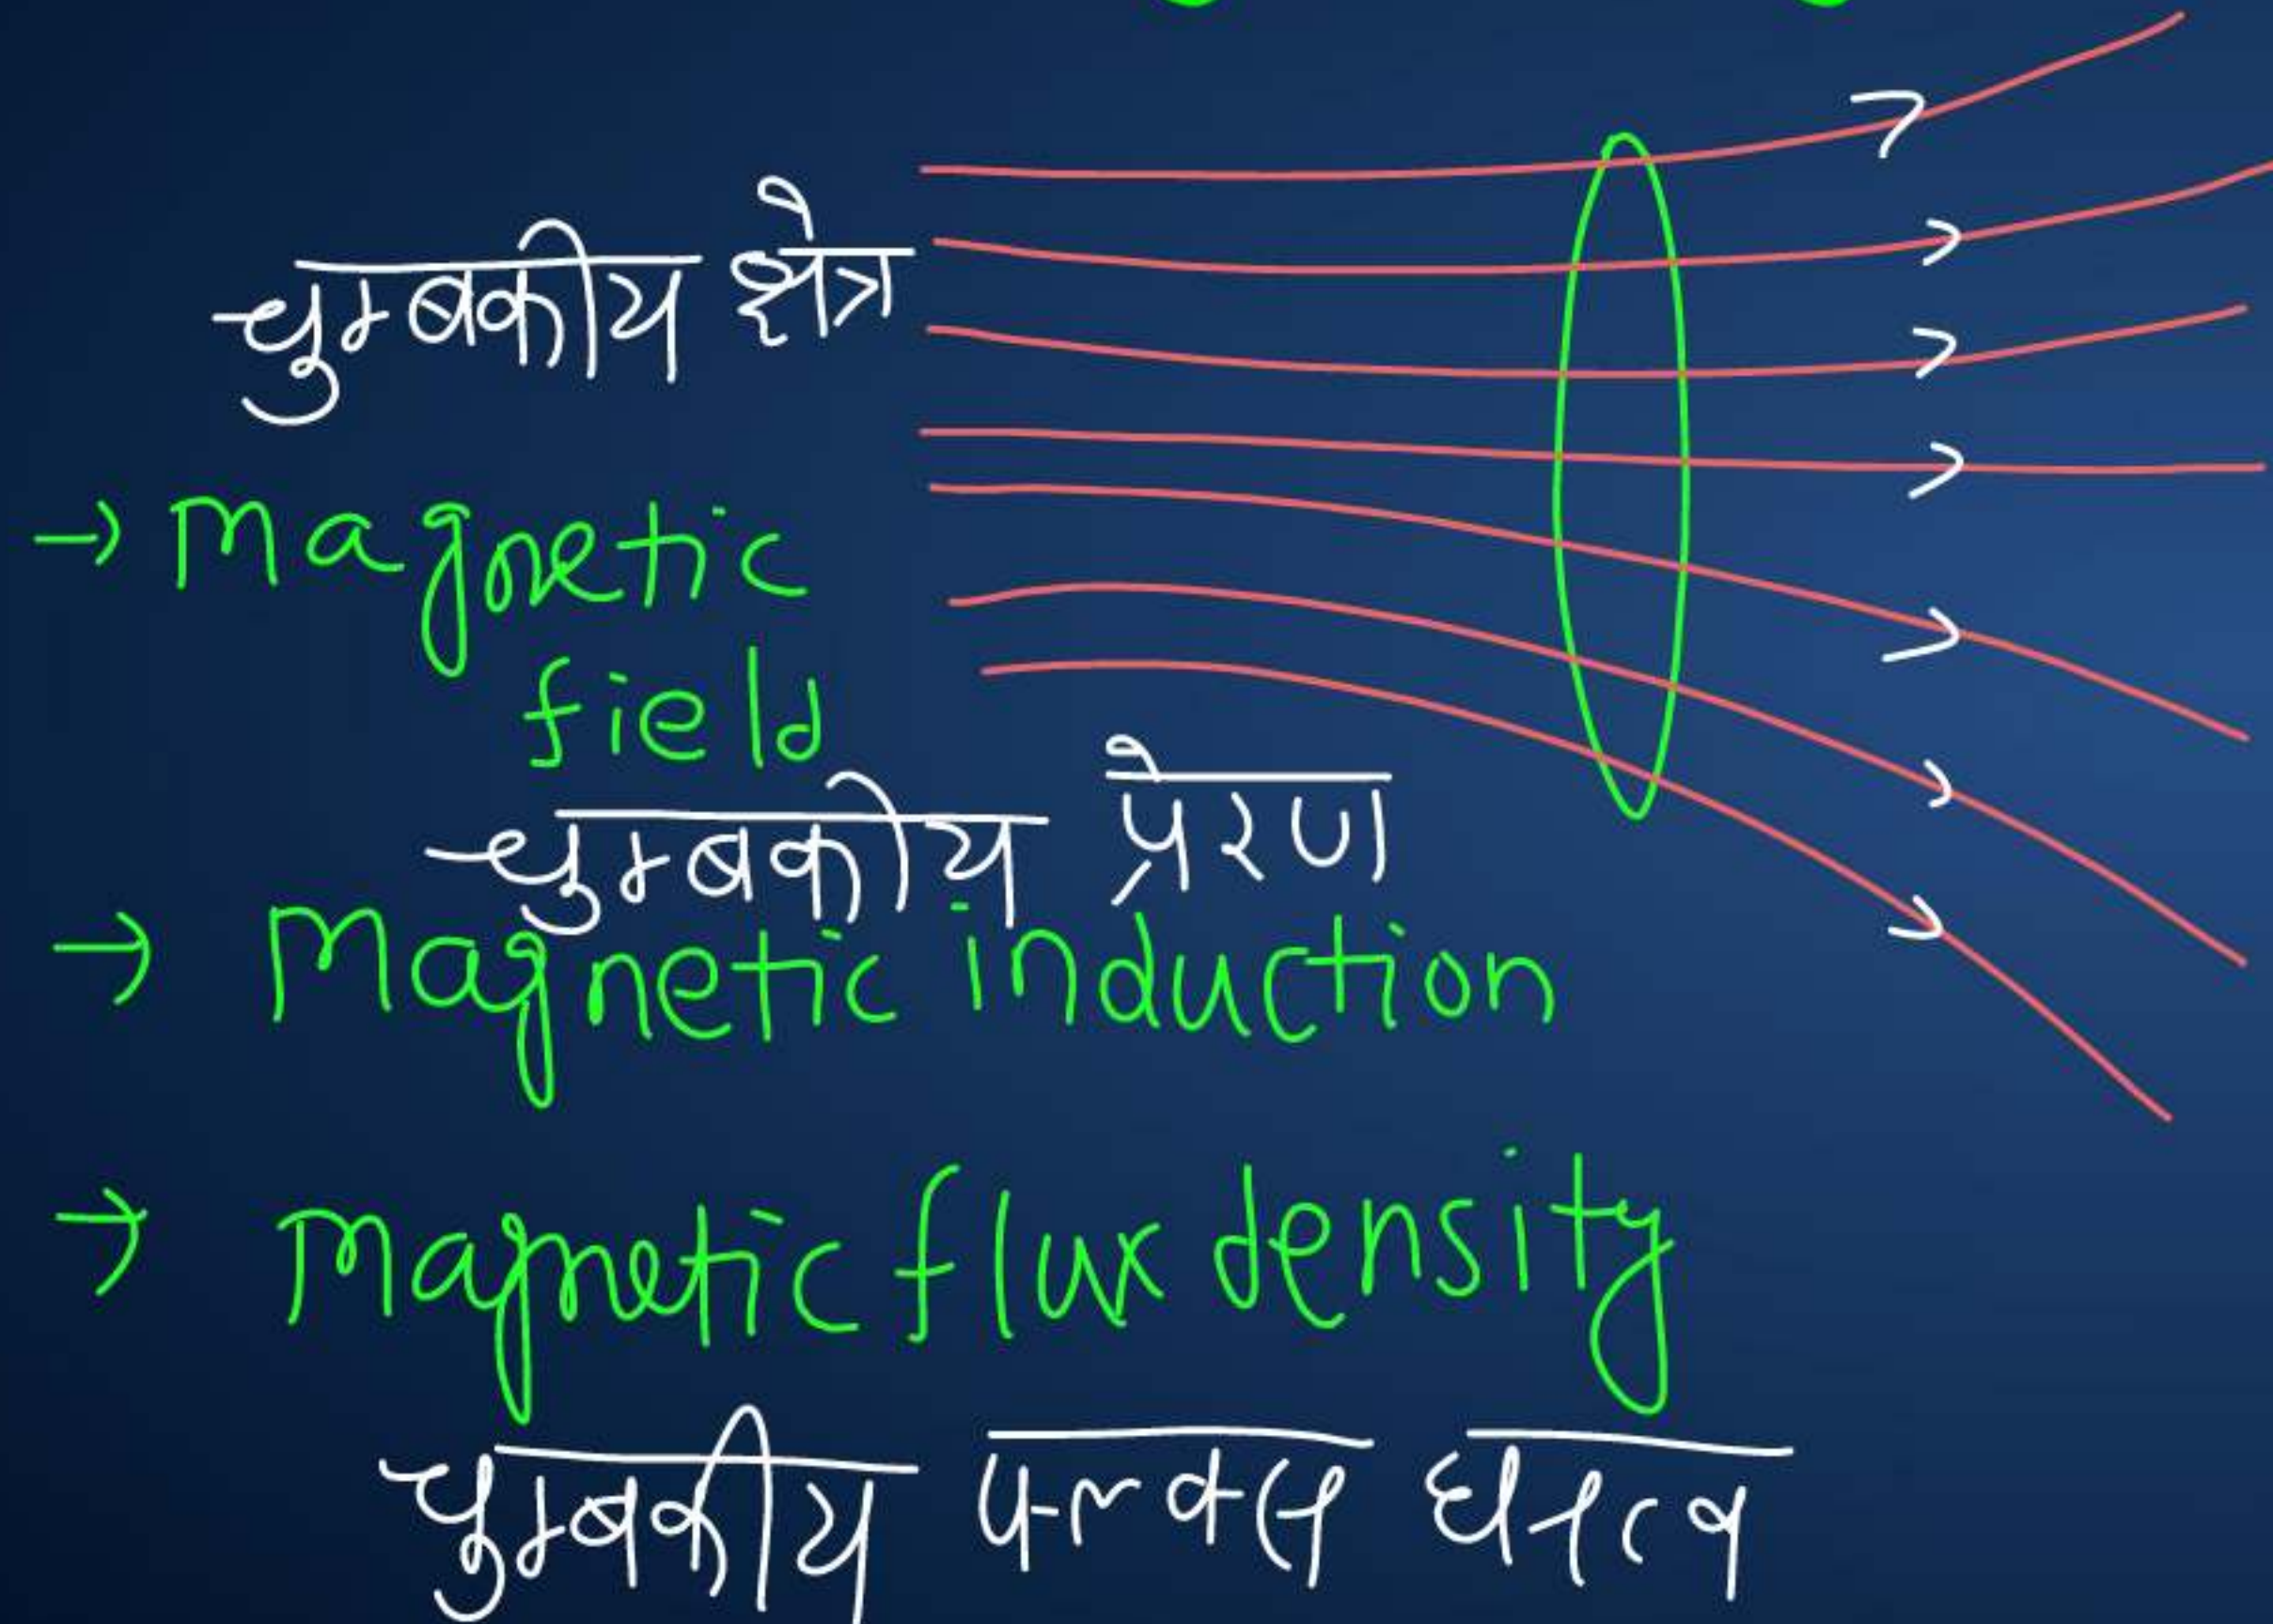 चुम्बकीय क्षेत्र
→ Magnetic
field
चुम्बकीय प्रेरण
→ Magnetic induction
→ Magnetic flux density
चुम्बकीय फ्लक्स घनत्व